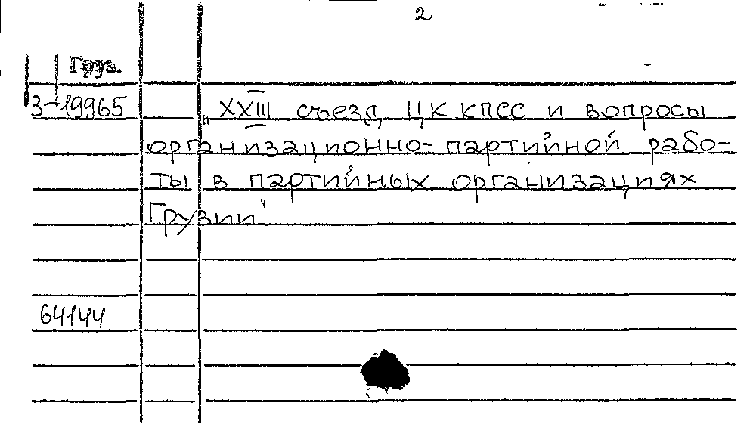 2
Груз.
3-19965 „XXIII съезд ЦК КПСС и вопросы
организационно-партийной рабо-
ты в партийных организациях
Грузии"
64144